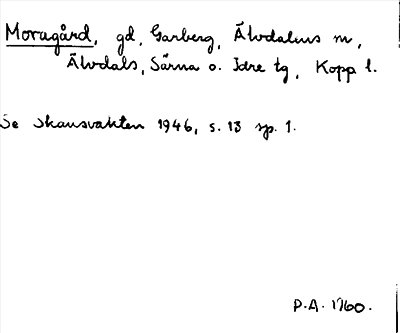 Moragård, gd, Garberg, Älvdalens m,
Älvdals, Särna o. Idre tg, Kopp l.
Se Skansvakten 1946, s. 13 sp. 1.
P.A. 1760.